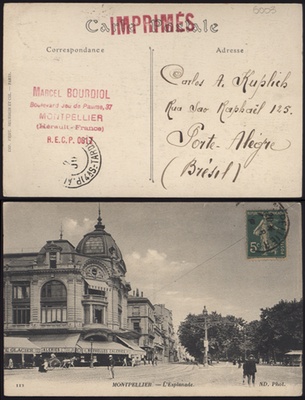 5003
Carte Postale
IMPRIMÉS
Correspondance
Adresse
MARCEL BOURDIOL
Boulevard Jeu de Paume, 37
MONTPELLIER
(Hérault-France)
R.E.C.P.
Carlos A. Kuplich
Rua Sao Raphaël 125.
Porto-Alègre
(Brésil)
GLACIER
111
MONTPELLIER — L'Esplanade
ND. Phot.